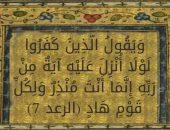 وَيَقُولُ الَّذِينَ كَفَرُوا
لَوْلَا أُنْزِلَ عَلَيْهِ آيَةٌ مِنْ
رَبِّهِ إِنَّمَا أَنْتَ مُنْذِرٌ وَلِكُلِّ
قَوْمٍ هَادٍ (الرعد 7)